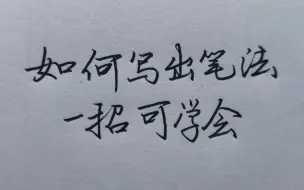 如何写出笔法
一招可学会